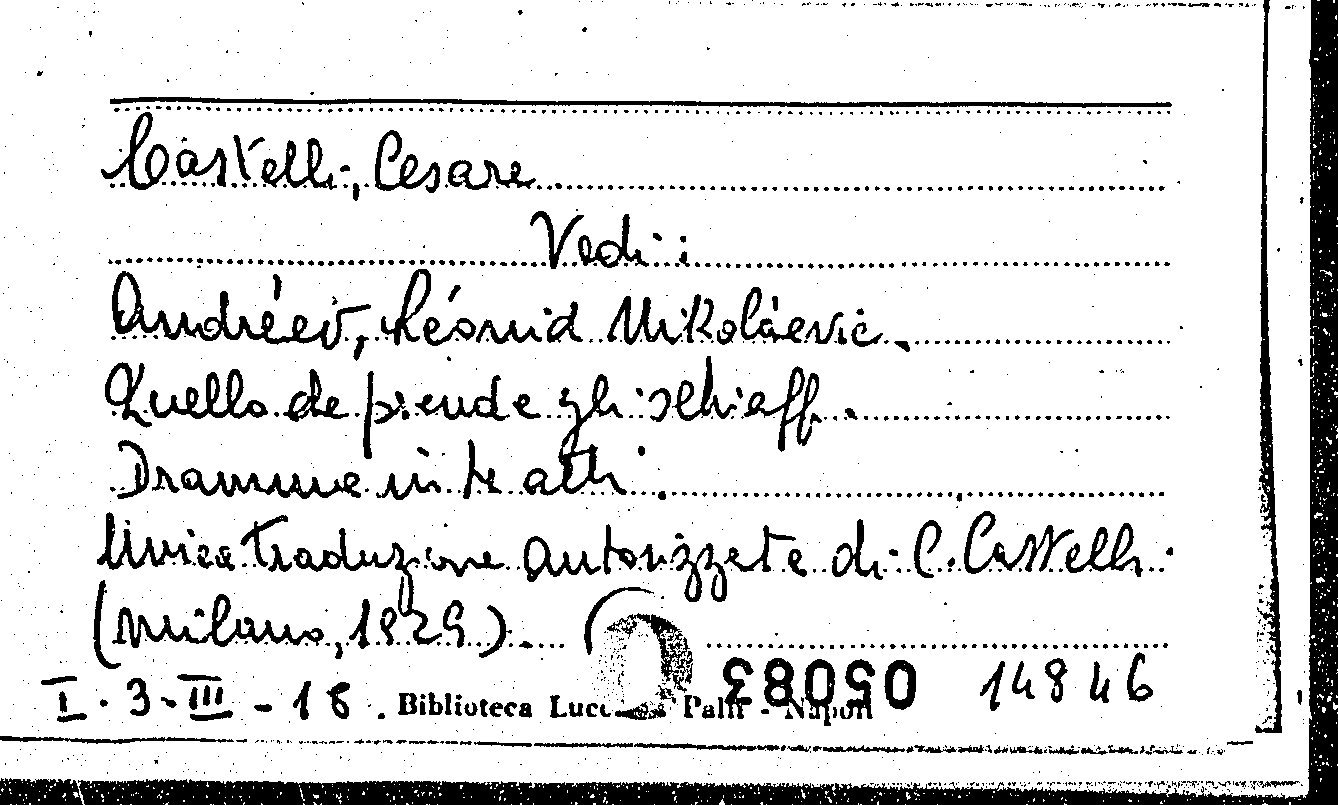 Castelli, Cesare
Vedi:
Andréev, Léonid Nikoláevic.
Quello che prende gli schiaffi.
Dramma in tre atti.
Unica traduzione autorizzata di C. Castelli.
(Milano, 1929).
I. 3-III-18. Biblioteca Lucchesi Palli - Napoli 05083 14846